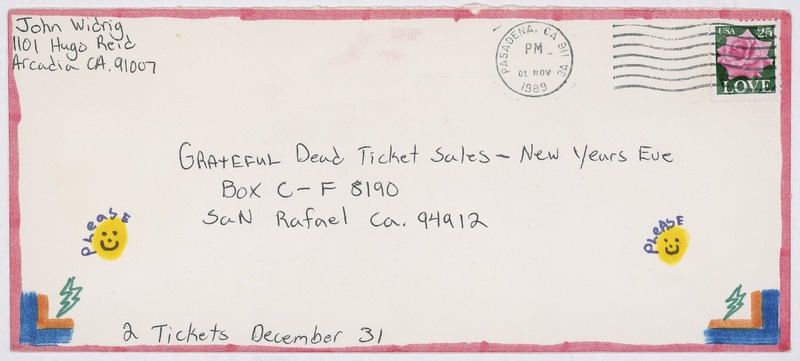 John Widrig
1101 Hugo Reid
Arcadia CA. 91007
PASADENA, CA 911
PM
01 NOV
1989
3A
USA 25
LOVE
GRATEFUL Dead Ticket Sales - New Years Eve
BOX C-F 8190
San Rafael Ca. 94912
PLeasE
PLeASE
2 Tickets December 31